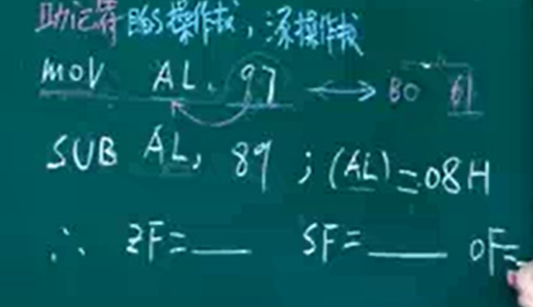 助记符 目的操作数，源操作数
MOV AL, 97 ↔ B0 61
SUB AL, 89 ; (AL)=08H
∴ ZF=___ SF=___ OF=